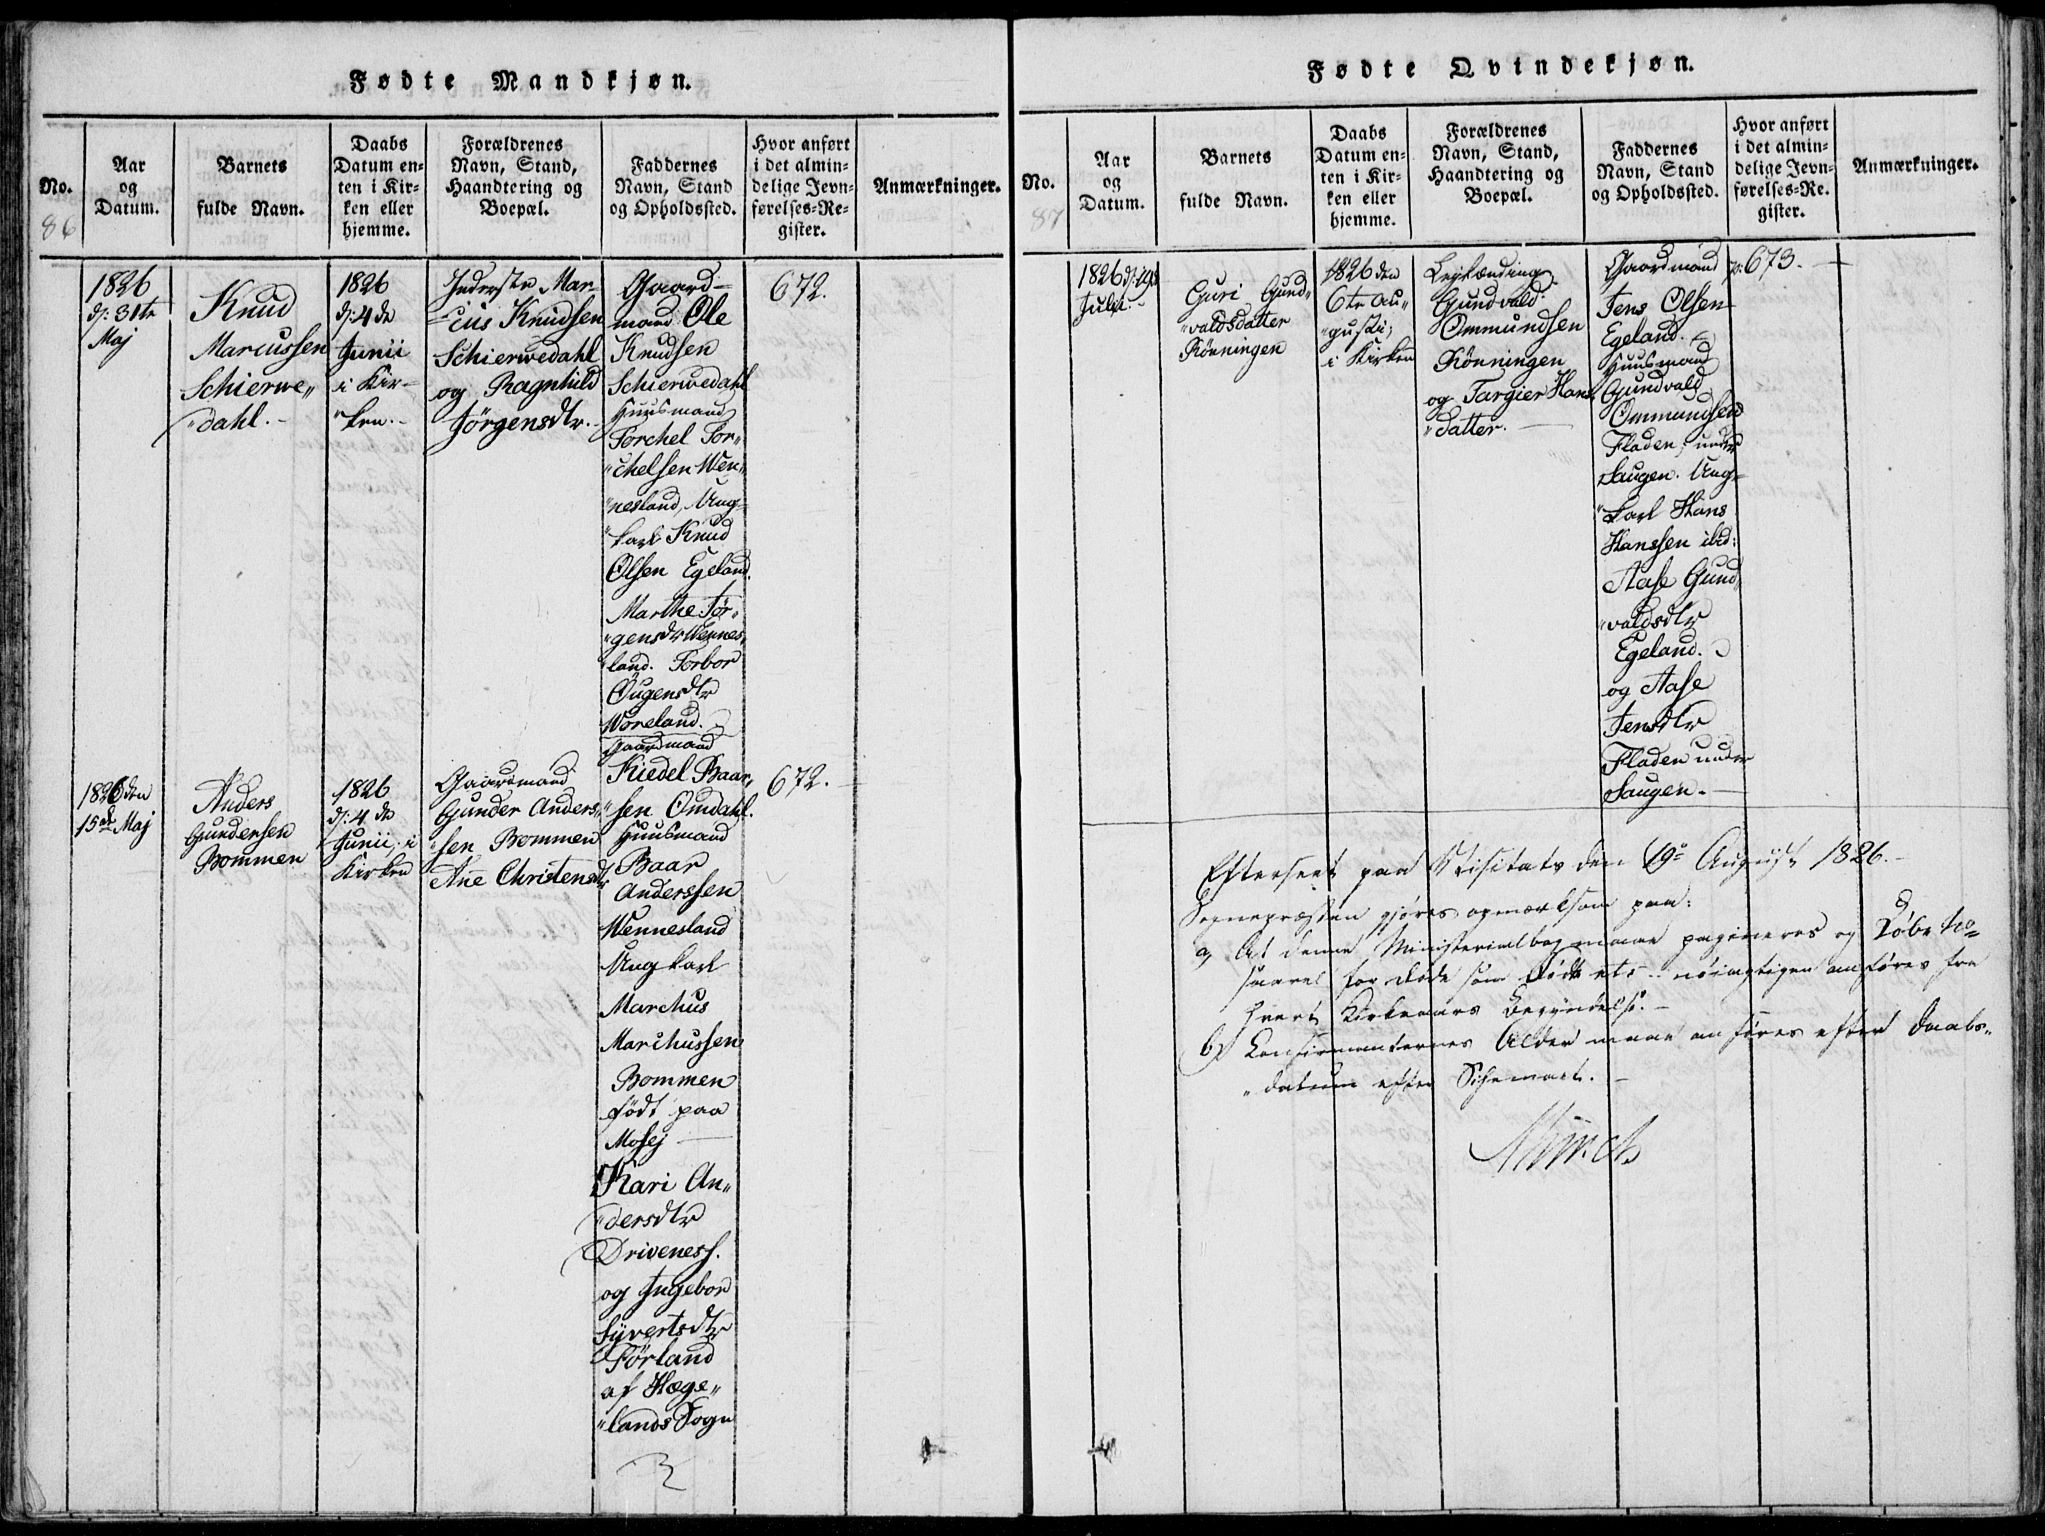 Fødte Mandkjøn.
No.
Aar
og
Datum.
Barnets
fulde Navn.
Daabs
Datum en-
ten i Kir-
ken eller
hjemme.
Forældrenes
Navn, Stand,
Haandtering og
Boepæl.
Faddernes
Navn, Stand
og Opholdssted.
Hvor anført
i det almin-
delige Jevn-
førelses-Re-
gister.
Anmærkninger.
86
1826
d: 31te
Maj
Knud
Marcussen
Schierwe„
„dahl.-
1826
d: 4de
Junii
i Kir-
„ken.-
Inderste Mar-
-cus Knudsen
Schierwedahl
og Ragnhild
Jörgensdtr.-
Gaard-
mand Ole
Knudsen
Schierwedahl
Huusmand
Torchel Tor„
„chelsen Wen„
„nesland, Ung-
„karl Knud
Olsen Egeland.
Marthe Jör„
„gensdtr Wennes„
„land. Torbor
Øugensdtr
Wöreland.
672.
1826 den
15de Maj
Anders
Gundersen
Bommen
1826
d: 4de
Junii, i
Kirken
Gaardmand
Gunder Anders„
„sen Bommen
Ane Christensdtr
Gaardmand
Kiedel Baar„
„sen Omdahl.
Huusmand
Baar
Anderssen
Wennesland
Ungkarl
Marchus
Marchussen
Bommen
født paa
Mosej
Kari An„
„dersdtr
Driveness.
og Ingebor
Syvertsdtr
Förland
af Hæge„
„lands Sogn
672.
Fødte Qvindekjøn.
No.
Aar
og
Datum.
Barnets
fulde Navn.
Daabs
Datum en-
ten i Kir-
ken eller
hjemme.
Forældrenes
Navn, Stand,
Haandtering og
Boepæl.
Faddernes
Navn, Stand
og Opholdssted.
Hvor anført
i det almin-
delige Jevn-
førelses-Re-
gister.
Anmærkninger.
87
1826 d:
Julii
Guri Gund„
„valdsdatter
Rönningen
1826 den
6te Au„
„gusti;
i Kirken
Leylænding
Gundvald
Ommundsen
Rönningen
og Targier Hans„
„datter.
Gaardmand
Jens Olsen
Egeland.
Huusmand
Gundvald
Ommundsen
Fladen, under
Haugen. Ung-
„karl Hans
Hanssen ibid:
Aase Gund„
„valdsdtr
Egeland.
og Aase
Jensdtr
Fladen under
Haugen.
p: 673.
Efterseet paa Visitats den 19de August 1826.
Sognepræsten gjøres opmærksom paa:
a) At denne Ministerialbog maae pagineres og Løbe No
saavel for døde som Fødte etc. nöiagtigen anføres fra
hvert Kirkeaars Begyndelse.
b) Confirmanternes Alder maae anføres efter Daabs„
„datum efter Schemaet.
Münch